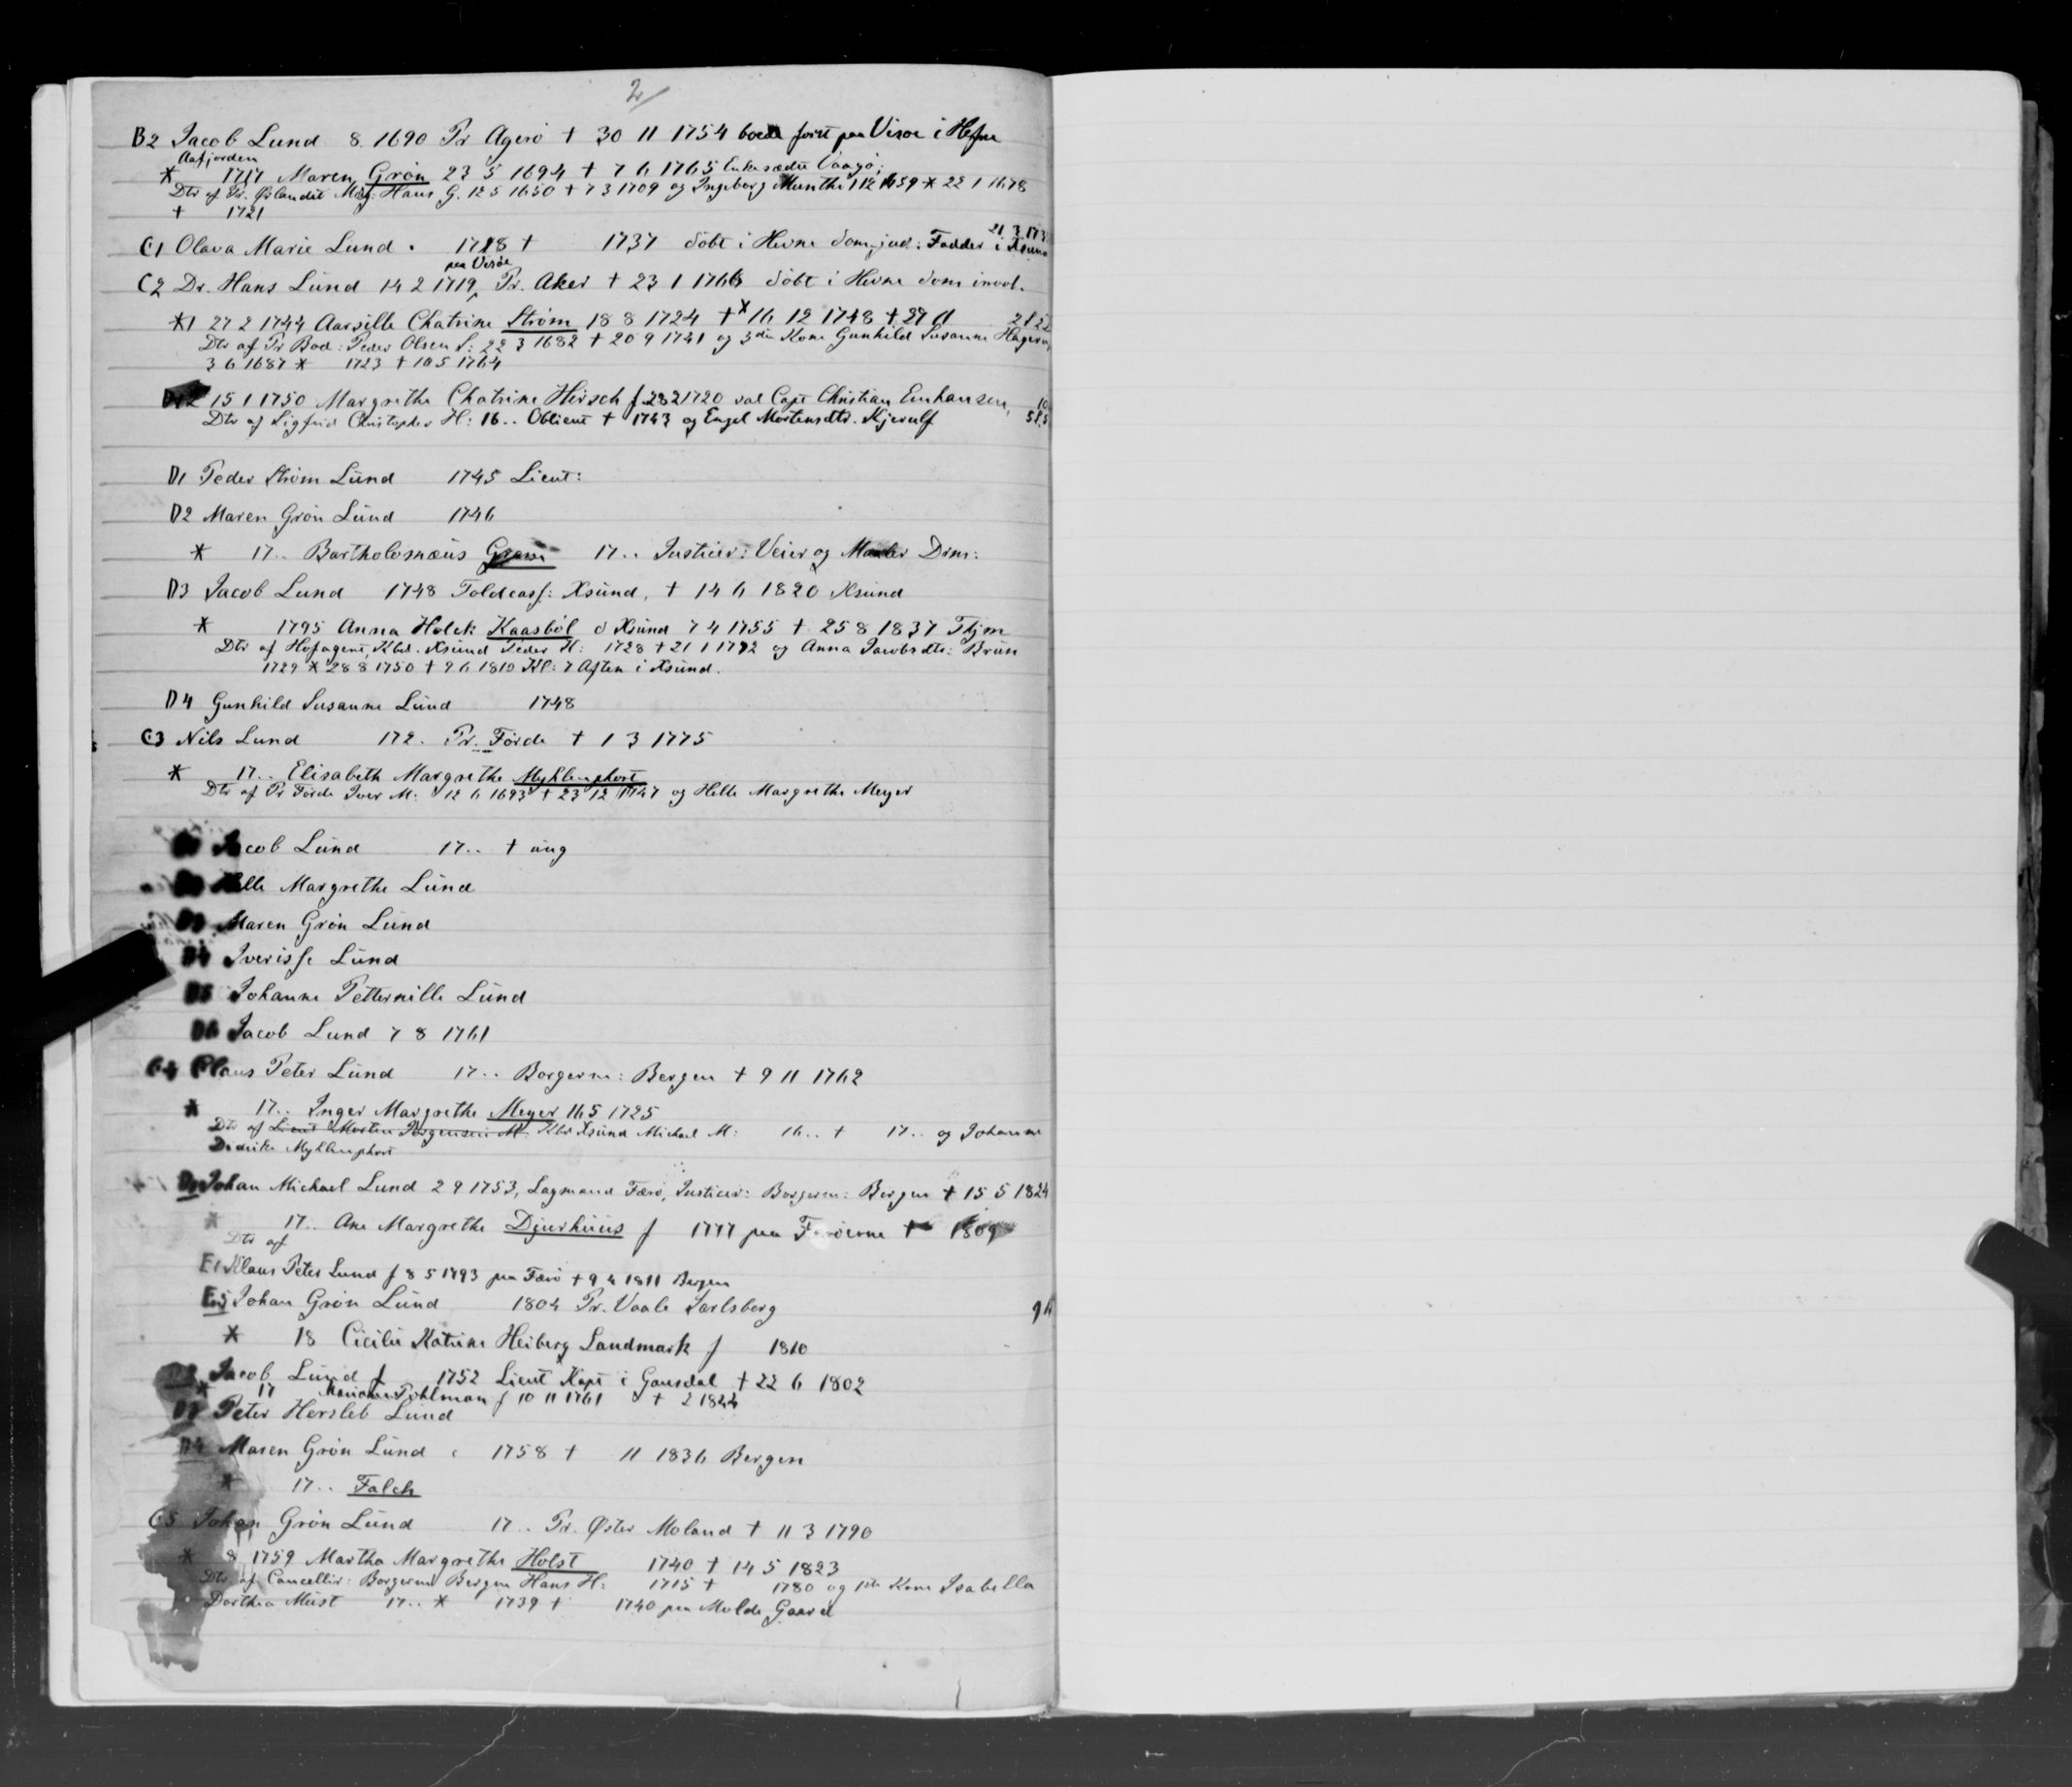 2/
B2 Jacob Lund 8. 1690 Pr Agerö † 30 11 1754 först paa Visöe i Hefne
Aafjorden
* 1717 Maren Grön 23 5 1694 † 7 6 1765 Enkesædet Vaagö;
Dtr af Pr. Ørlandet Mag: Hans G. 12 5 1650 † 7 3 1709 og Ingeborg Munthe 1 12 1659 * 22 1 1678
† 1721
21 3 173
C1 Olava Marie Lund. 1718 † 1737 döbt i Hevne Fadder i Xsund
paa Visöe
C2 Dr. Hans Lund 14 2 1719, Pr. Aker † 23 1 1766 döbt i Hevne
*1 27 2 1744 Aarsille Chatrine Ström 18 8 1724 † 16 12 1748 † 27 11
Dtr af Pr Bod: Peder Olsen S: 22 3 1682 † 20 9 1741 og 3die Kone Gunhild Susanne
3 6 1687 * 1723 † 10 5 1764
15 1 1750 Margrethe Chatrine Hirsch f 28 2 1720 Capt Christian Emhausen,
Dtr af Sigfrid Christopher H: 16.. Oblieut † 1743 og Engel Mortensdtr. Kjerulf
D1 Peder Ström Lund 1745 Lieut:
D2 Maren Grön Lund 1746
* 17.. Bartholomæus 17.. Justicer: Veier og Maaler Drm:
D3 Jacob Lund 1748 Toldcass: Xsund, † 14 6 1820 Xsund
* 1795 Anna Holck Kaasböl d Xsund 7 4 1755 † 25 8 1837 Thjm
Dtr af Hofagent, Kbd. Xsund Peder K: 1728 † 21 1 1792 og Anna Jacobsdtr: Brun
1729 * 28 8 1750 † 9 6 1810 Kl: 7 Aften i Xsund.
D4 Gunhild Susanne Lund 1748
C3 Nils Lund 172. Pr. Förde † 1 3 1775
* 17.. Elisabeth Margrethe Myhlenphort
Dtr af Pr Förde Iver M: 12 6 1693 † 23 12 1747 og Helle Margrethe Meyer
Jacob Lund 17.. † ung
Helle Margrethe Lund
D3 Maren Grön Lund
D4 Iverisse Lund
D5 Johanne Petternille Lund
D6 Jacob Lund 7 8 1761
C4 Claus Peter Lund 17.. Borgerm: Bergen † 9 11 1762
* 17.. Inger Margrethe Meyer 16 5 1725
Dtr af Lieut Morten Jörgensen M. Kbd Xsund Michael M: 16.. † 17.. og Johanne
Didrike Myhlenphort
D1 Johan Michael Lund 2 9 1753, Lagmand Færö, Justicer: Borgerm: Bergen † 15 5 1824
* 17.. Ane Margrethe Djurhuus f 1777 paa Færöerne † 1809
Dtr af
E1 Klaus Peter Lund f 8 5 1793 paa Færö † 9 4 1811 Bergen
E5 Johan Grön Lund 1804 Pr. Vaale Jarlsberg
* 18 Cicilie Katrine Heiberg Landmark f 1810
D2 Jacob Lund f 1752 Lieut Kapt i Gausdal † 22 6 1802
* 17 Pohlman f 10 11 1761 † 2 1844
Peter Hersleb Lund
D4 Maren Grön Lund 1758 † 11 1836 Bergen
* 17.. Falch
C5 Johan Grön Lund 17.. Pr. Øster Moland † 11 3 1790
* 8 1759 Martha Margrethe Holst 1740 † 14 5 1823
Dtr. af Cancellir: Borgerm Bergen Hans H: 1715 † 1780 og 1ste Kone Isabella
Dorthea Must 17.. * 1739 † 1740 paa Molde Gaard